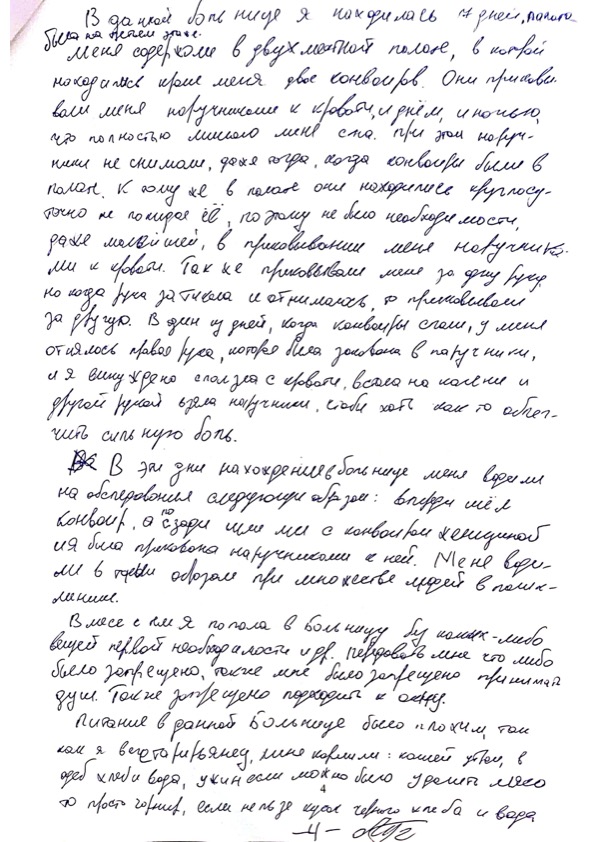 В данной больнице я находилась 7 дней, палата
была на третьем этаже.
Меня содержали в двухместной палате, в которой
находились кроме меня двое конвоиров. Они приковы-
вали меня наручниками к кровати, и днём, и ночью,
что полностью лишало меня сна. При этом наруч-
ники не снимали, даже тогда, когда конвоиры были в
палате. К тому же в палате они находились круглосу-
точно не покидая её, поэтому не было необходимости,
даже малейшей, в приковывании меня наручника-
ми к кровати. Так же приковывали меня за одну руку,
но когда рука затикала и отнималась, то приковывали
за другую. В один из дней, когда конвоиры спали, у меня
отнялась правая рука, которая была закована в наручники,
и я вынуждено сползла с кровати, встала на колени и
другой рукой взяла наручники, чтобы хоть как то облег-
чить сильную боль.
В эти дни нахождения в больнице меня водили
на обследования следующим образом: впереди шёл
конвоир, а по сзади шли мы с конвоиром женщиной
и я была прикована наручниками к ней. Меня води-
ли в таком образом при множестве людей в поликлин-
линике.
Вместе с тем я попала в больницу без каких-либо
вещей первой необходимости и др. Передавать мне что либо
было запрещено, также мне было запрещено принимать
душ. Также запрещено подходить к окну.
Питание в данной Больнице было плохим, так
как я вегетарианец, меня кормили: кашей утром, в
обед хлеб и вода, ужин если можно было удалить мясо
то просто гарнир, если нельзя кусок черного хлеба и вода
-4-